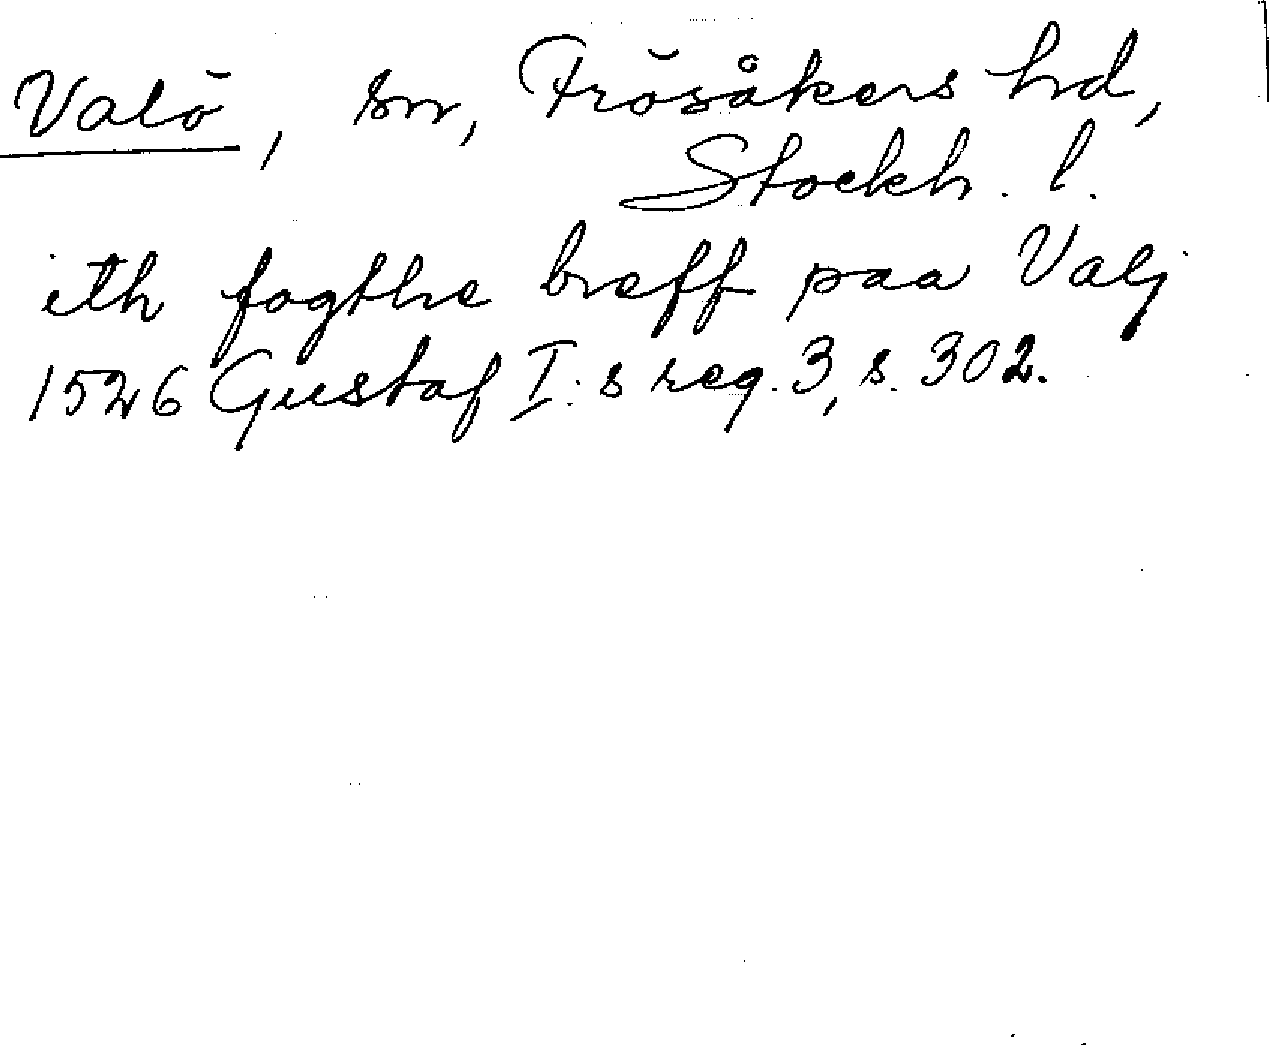 Valö, sn, Frösåkers hd,
Stockh. l.
ith fogthe breff paa Valj
1526 Gustaf I:s reg. 3, s. 302.